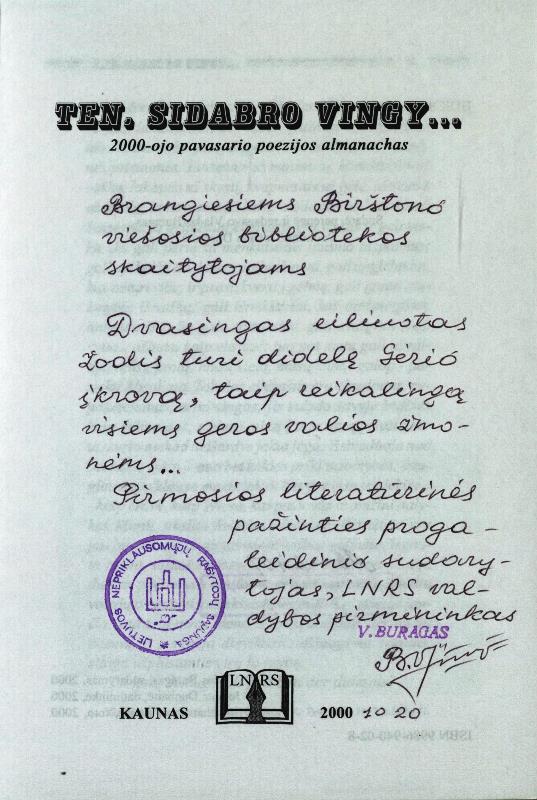 TEN. SIDABRO VINGY...
2000-ojo pavasario poezijos almanachas
Brangiesiems Birštono
viešosios bibliotekos
skaitytojams
Dvasingas eiliuotas
žodis turi didelę Gerio
įkrovą, taip reikalingą
visiems geros valios žmo-
nėms...
Pirmosios literatūrinės
pažinties proga -
leidinio sudary-
tojas, LNRS val-
dybos pirmininkas
V. BURAGAS
LIETUVOS NEPRIKLAUSOMŲJŲ RAŠYTOJŲ SĄJUNGA
LN RS
KAUNAS 2000 10 20
ISBN 9986-940-02-8